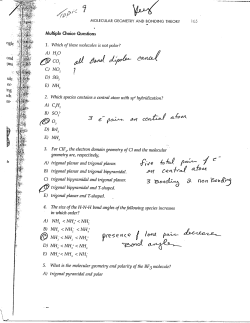 Topic 9 Key
MOLECULAR GEOMETRY AND BONDING THEORY 163
Multiple Choice Questions
1. Which of these molecules is not polar?
A) H₂O
B) CO₂ all bond dipoles cancel
C) NO₂
D) SO₂
E) NH₃
2. Which species contains a central atom with sp² hybridization?
A) C₂H₂
C) O₃ 3 e⁻ pairs on central atom
D) BrI₃
E) NH₃
3. For ClF₃, the electron domain geometry of Cl and the molecular
geometry are, respectively,
A) trigonal planar and trigonal planar. five total pairs of e⁻
B) trigonal planar and trigonal bipyramidal. on central atom
C) trigonal bipyramidal and trigonal planar. 3 bonding 2 non bonding
D) trigonal bipyramidal and T-shaped.
E) trigonal planar and T-shaped.
4. The size of the H-N-H bond angles of the following species increases
in which order?
presence of lone pair decreases
bond angles
5. What is the molecular geometry and polarity of the BF₃ molecule?
A) trigonal pyramidal and polar